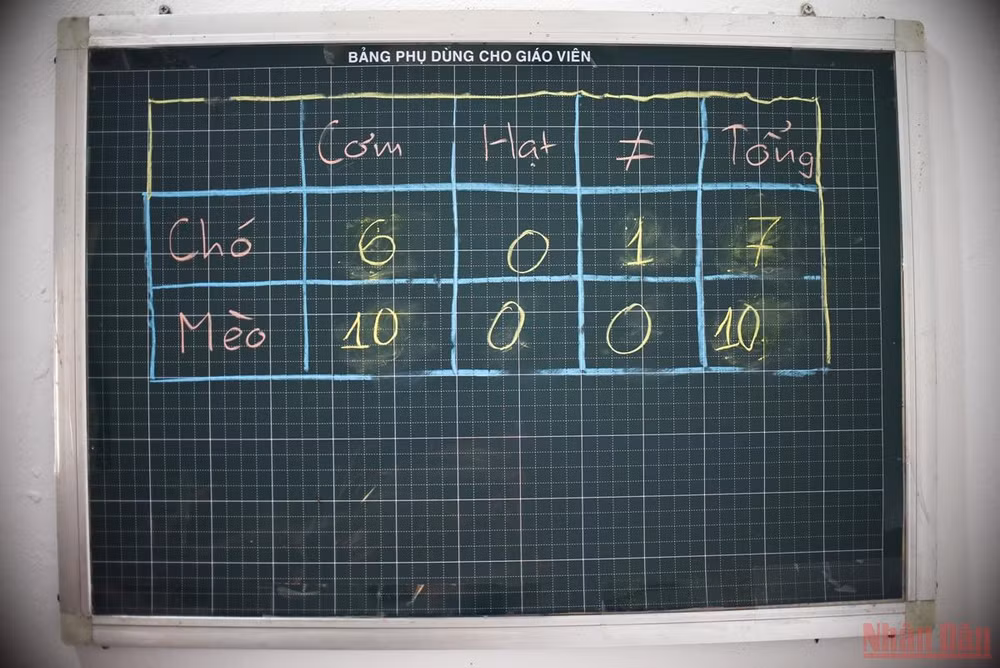 BẢNG PHỤ DÙNG CHO GIÁO VIÊN
Cơm Hạt ≠ Tổng
Chó 6 0 1 7
Mèo 10 0 0 10
Nhân Dân